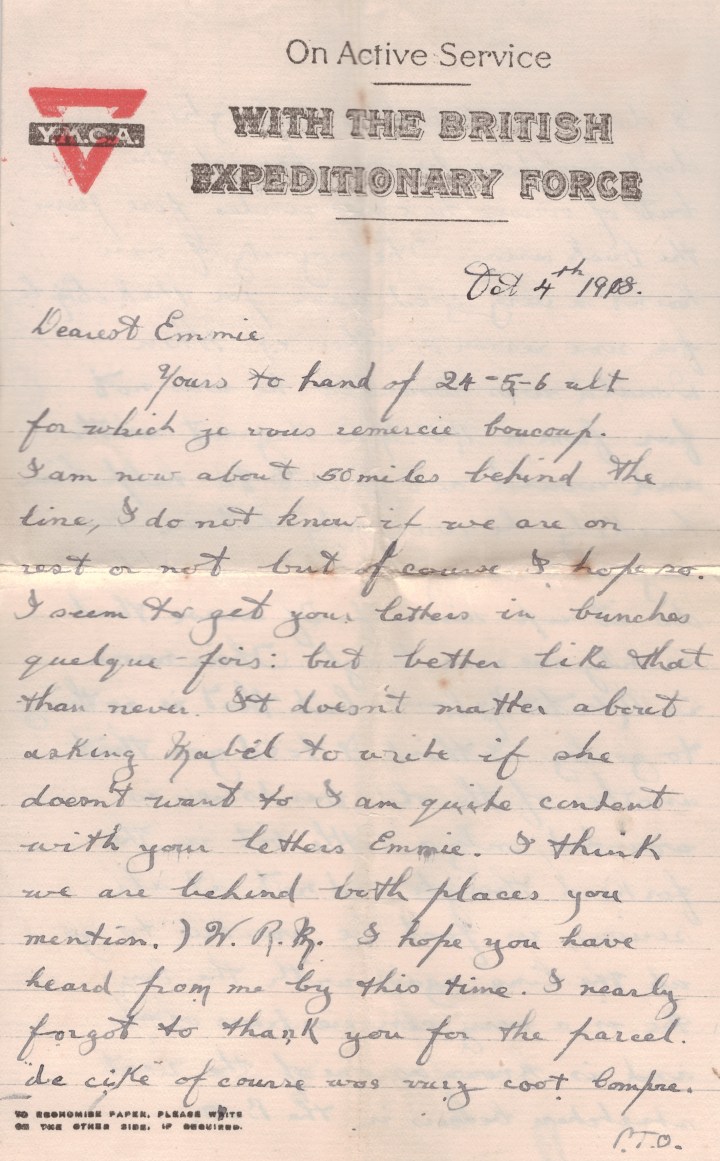 On Active Service
Y.M.C.A.
WITH THE BRITISH
EXPEDITIONARY FORCE
Oct 4th 1918.
Dearest Emmie
Yours to hand of 24-5-6 ult
for which je vous remercie boucoup.
I am now about 50 miles behind the
line, I do not know if we are on
rest or not but of course I hope so.
I seem to get your letters in bunches
quelque-fois: but better like that
than never. It doesn't matter about
asking Mabel to write if she
doesn't want to I am quite content
with your letters Emmie. I think
we are behind both places you
mention.) W. R. M. I hope you have
heard from me by this time. I nearly
forgot to thank you for the parcel.
"de cike" of course was vury coot Compre.
TO ECONOMISE PAPER, PLEASE WRITE
ON THE OTHER SIDE, IF REQUIRED.
P.T.O.